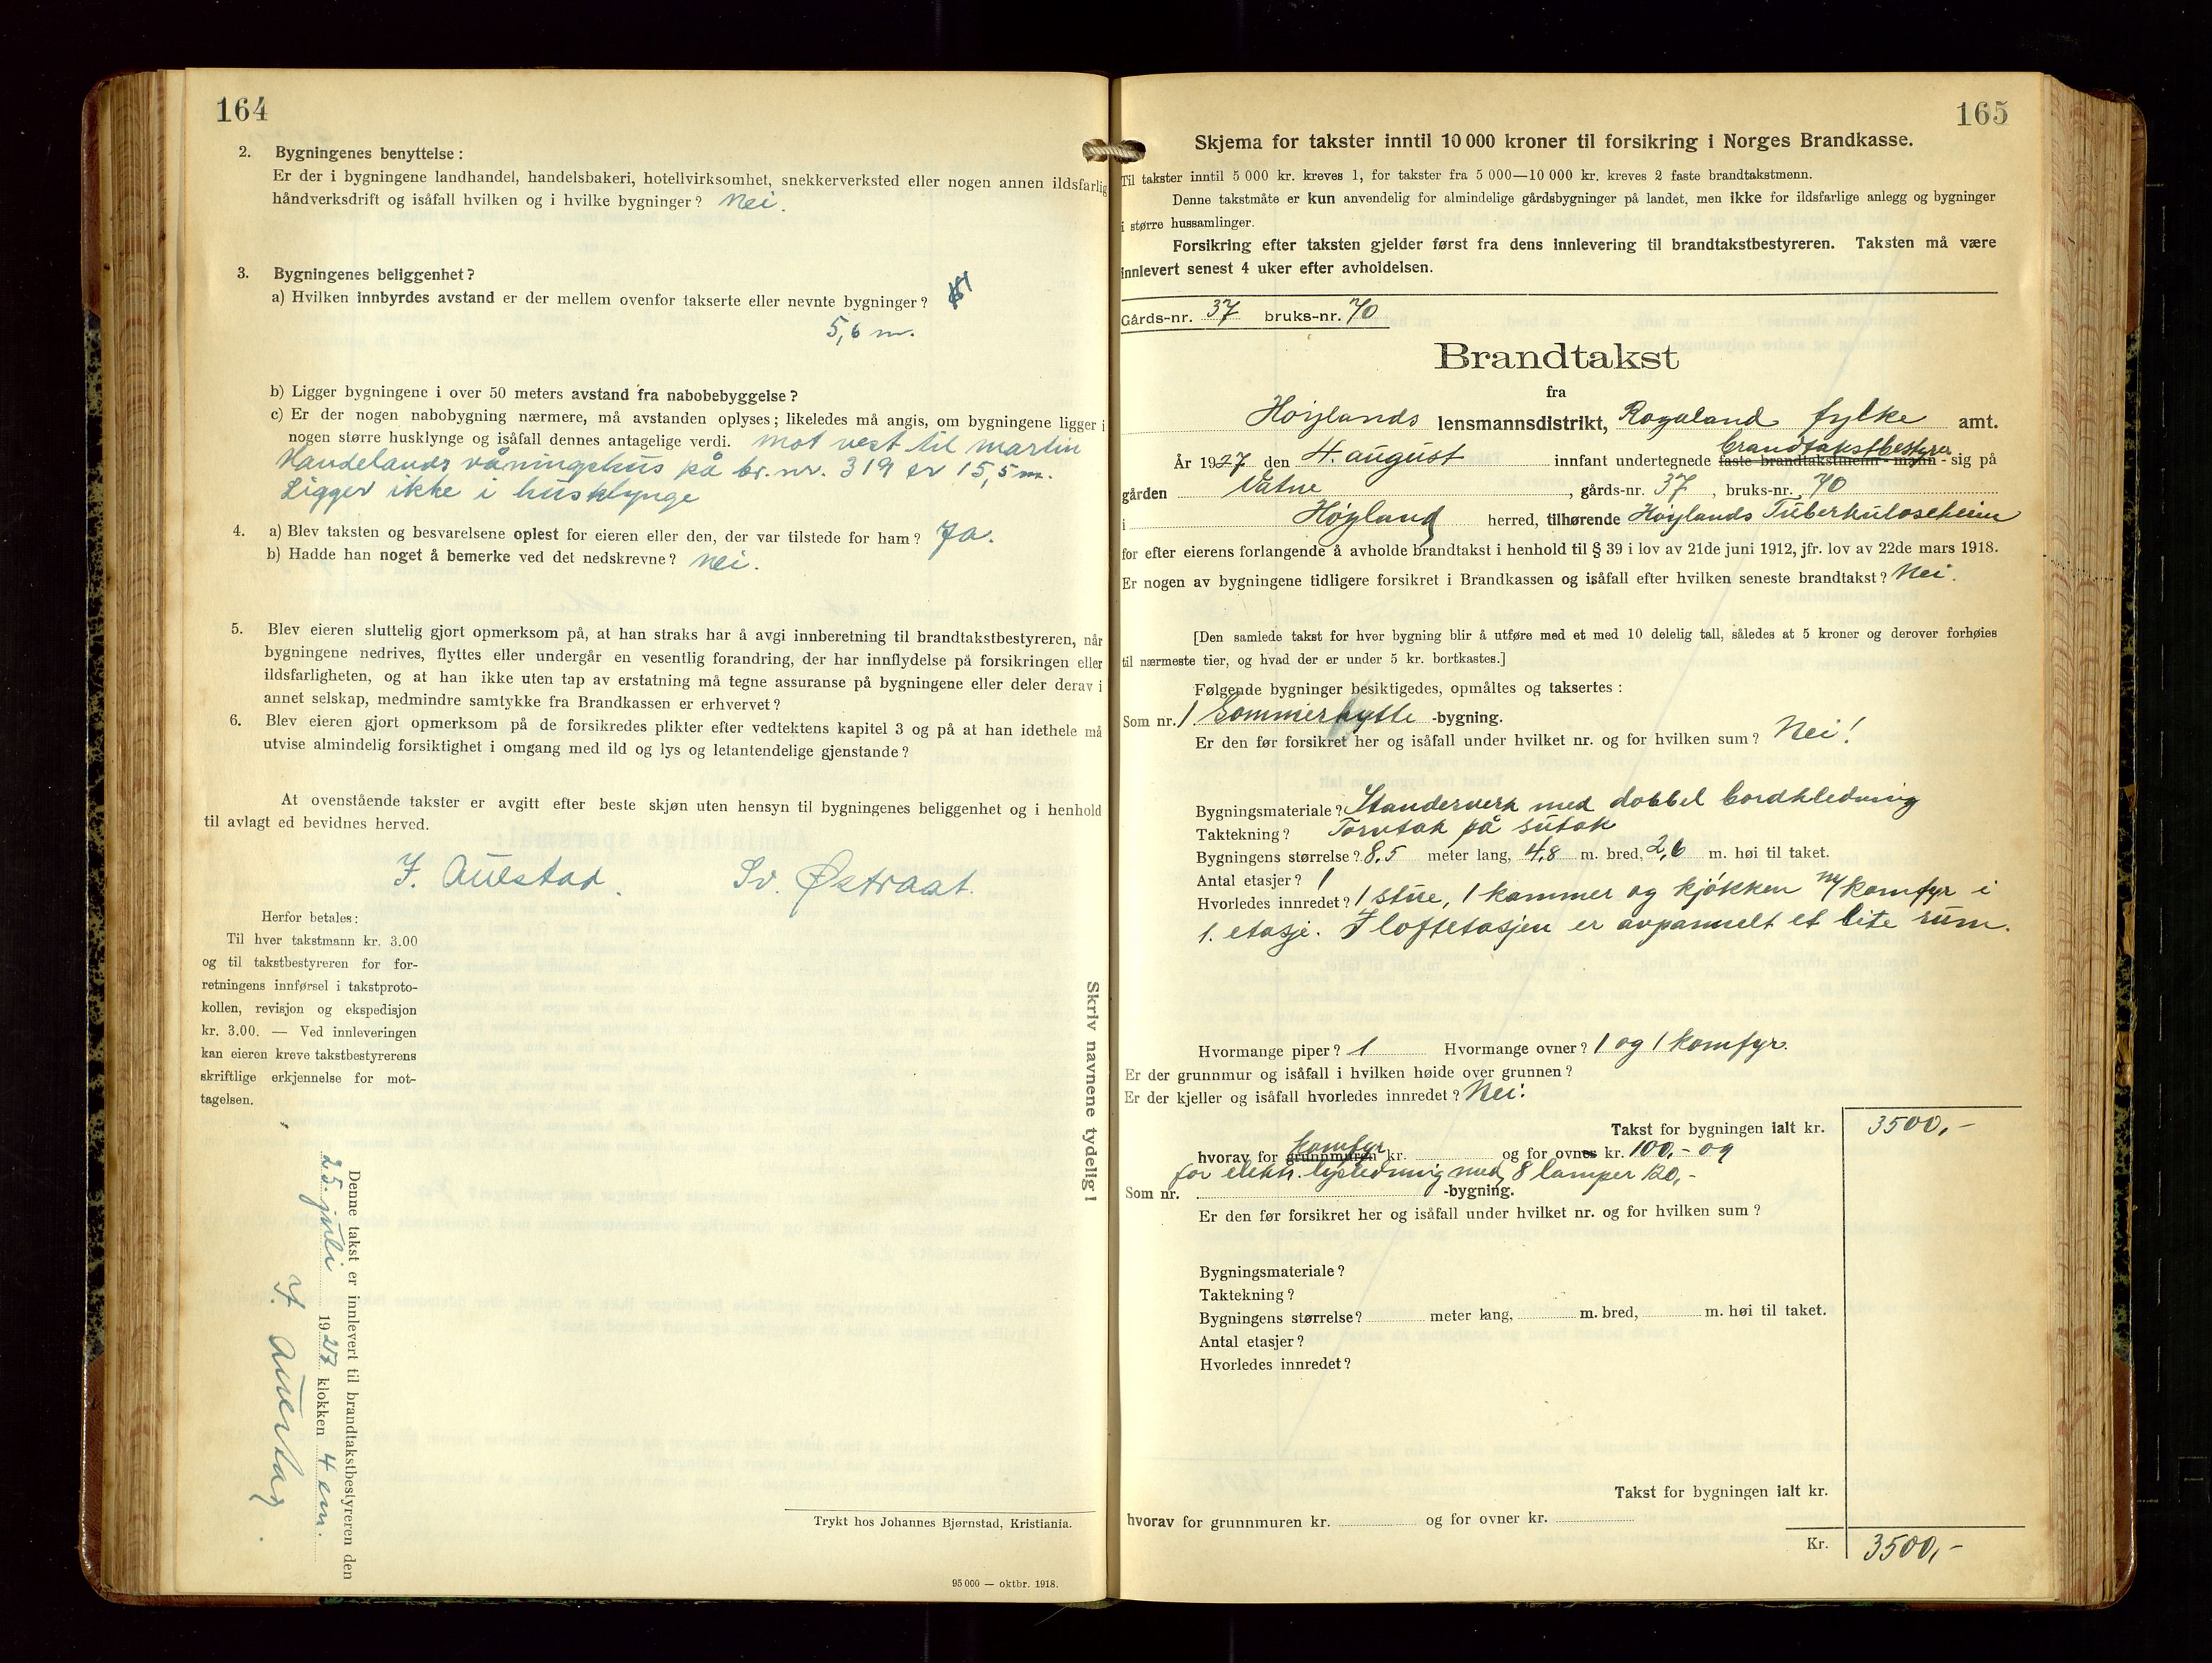 164
2. Bygningenes benyttelse:
Er der i bygningene landhandel, handelsbakeri, hotellvirksomhet, snekkerverksted eller nogen annen ildsfarlig
håndverksdrift og isåfall hvilken og i hvilke bygninger? Nei.
3. Bygningenes beliggenhet?
a) Hvilken innbyrdes avstand er der mellem ovenfor takserte eller nevnte bygninger?
5,6 m.
b) Ligger bygningene i over 50 meters avstand fra nabobebyggelse?
c) Er der nogen nabobygning nærmere, må avstanden oplyses; likeledes må angis, om bygningene ligger i
nogen større husklynge og isåfall dennes antagelige verdi. mot vest til martin
Haudelands våningshus på br. nr. 319 er 15,5 m.
Ligger ikke i husklynge
4. a) Blev taksten og besvarelsene oplest for eieren eller den, der var tilstede for ham? Ja.
b) Hadde han noget å bemerke ved det nedskrevne? nei.
5. Blev eieren sluttelig gjort opmerksom på, at han straks har å avgi innberetning til brandtakstbestyreren, når
bygningene nedrives, flyttes eller undergår en vesentlig forandring, der har innflydelse på forsikringen eller
ildsfarligheten, og at han ikke uten tap av erstatning må tegne assuranse på bygningene eller deler derav i
annet selskap, medmindre samtykke fra Brandkassen er erhvervet?
6. Blev eieren gjort opmerksom på de forsikredes plikter efter vedtektens kapitel 3 og på at han idethele må
utvise almindelig forsiktighet i omgang med ild og lys og letantendelige gjenstande?
At ovenstående takster er avgitt efter beste skjøn uten hensyn til bygningenes beliggenhet og i henhold
til avlagt ed bevidnes herved.
J. Auestad. Sv. Østraat.
Herfor betales:
Til hver takstmann kr. 3.00
og til takstbestyreren for for-
retningens innførsel i takstproto-
kollen, revisjon og ekspedisjon
kr. 3.00. — Ved innleveringen
kan eieren kreve takstbestyrerens
skriftlige erkjennelse for mot-
tagelsen.
Skriv navnene tydelig!
Denne takst er innlevert til brandtakstbestyreren den
25. juli 1927 klokken 4 em.
J. Auestad.
Trykt hos Johannes Bjørnstad, Kristiania.
95 000 — oktbr. 1918.
165
Skjema for takster inntil 10 000 kroner til forsikring i Norges Brandkasse.
Til takster inntil 5 000 kr. kreves 1, for takster fra 5 000—10 000 kr. kreves 2 faste brandtakstmenn.
Denne takstmåte er kun anvendelig for almindelige gårdsbygninger på landet, men ikke for ildsfarlige anlegg og bygninger
i større hussamlinger.
Forsikring efter taksten gjelder først fra dens innlevering til brandtakstbestyreren. Taksten må være
innlevert senest 4 uker efter avholdelsen.
Gårds-nr. 37 bruks-nr. 70
Brandtakst
fra
Høylands lensmannsdistrikt, Rogaland fylke amt.
brandtakstbestyrer
År 1927 den 4. august innfant undertegnede faste brandtakstmenn - mann - sig på
gården Vatne, gårds-nr. 37, bruks-nr. 70
i Høyland herred, tilhørende Høylands Tuberkuloseheim
for efter eierens forlangende å avholde brandtakst i henhold til § 39 i lov av 21de juni 1912, jfr. lov av 22de mars 1918.
Er nogen av bygningene tidligere forsikret i Brandkassen og isåfall efter hvilken seneste brandtakst? Nei.
[Den samlede takst for hver bygning blir å utføre med et med 10 delelig tall, således at 5 kroner og derover forhøies
til nærmeste tier, og hvad der er under 5 kr. bortkastes.]
Følgende bygninger besiktigedes, opmåltes og taksertes:
Som nr. 1 Sommerhytte -bygning.
Er den før forsikret her og isåfall under hvilket nr. og for hvilken sum? Nei!
Bygningsmateriale? Standerverk med dobbel bordkledning
Taktekning? Torvtak på sutak
Bygningens størrelse? 8,5 meter lang, 4,8 m. bred, 2,6 m. høi til taket.
Antal etasjer? 1
Hvorledes innredet? 1 stue, 1 kammer og kjøkken m/komfyr i
1. etasje. I loftetasjen er avpannelt et lite rum.
Hvormange piper? 1 Hvormange ovner? 1 og 1 komfyr.
Er der grunnmur og isåfall i hvilken høide over grunnen?
Er der kjeller og isåfall hvorledes innredet? Nei!
Takst for bygningen ialt kr. 3500,-
komfyr
hvorav for grunnmuren kr. og for ovnes kr. 100,- og
for elektr. lysledning med 8 lamper 120,-
Som nr. -bygning.
Er den før forsikret her og isåfall under hvilket nr. og for hvilken sum?
Bygningsmateriale?
Taktekning?
Bygningens størrelse? meter lang, m. bred, m. høi til taket.
Antal etasjer?
Hvorledes innredet?
Takst for bygningen ialt kr.
hvorav for grunnmuren kr. og for ovner kr.
Kr. 3500,-